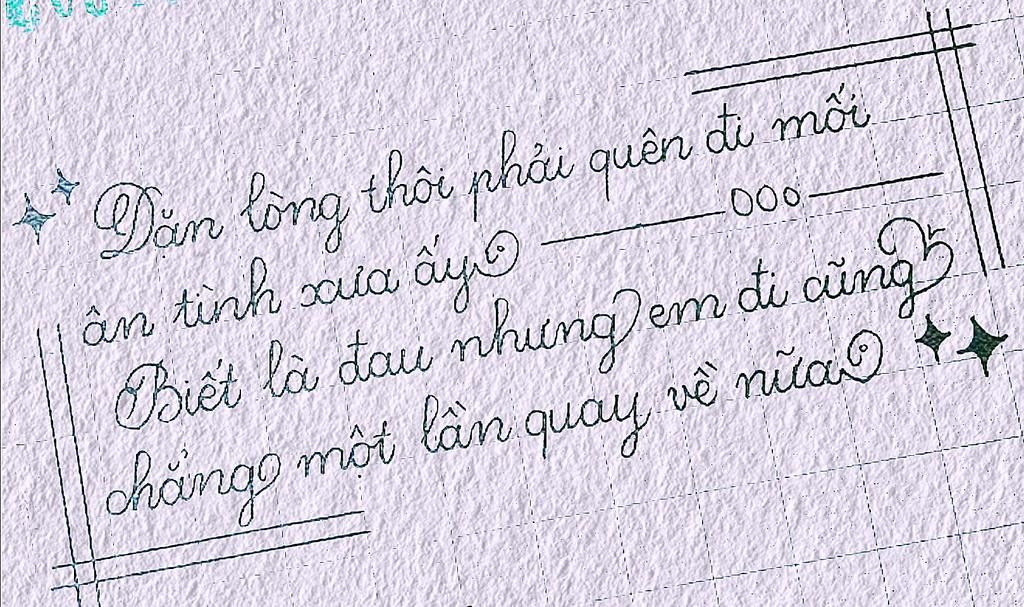 Dặn lòng thôi phải quên đi mối
ân tình xưa ấy
Biết là đau nhưng em đi cũng
chẳng một lần quay về nữa